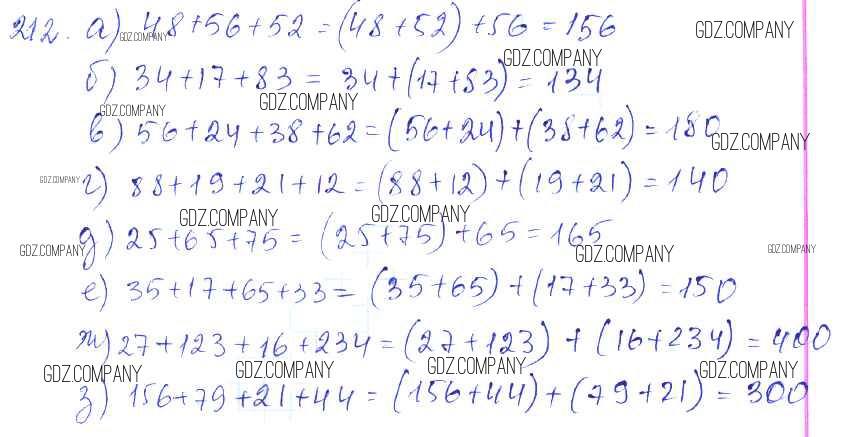 212. а) 48+56+52=(48+52)+56=156
GDZ.COMPANY
GDZ.COMPANY
б) 34+17+83=34+(17+83)=134
GDZ.COMPANY
GDZ.COMPANY
GDZ.COMPANY
в) 56+24+38+62=(56+24)+(38+62)=180
GDZ.COMPANY
г) 88+19+21+12=(88+12)+(19+21)=140
GDZ.COMPANY
GDZ.COMPANY
GDZ.COMPANY
д) 25+65+75=(25+75)+65=165
GDZ.COMPANY
GDZ.COMPANY
GDZ.COMPANY
е) 35+17+65+33=(35+65)+(17+33)=150
ж) 27+123+16+234=(27+123)+(16+234)=400
GDZ.COMPANY
GDZ.COMPANY
GDZ.COMPANY
GDZ.COMPANY
з) 156+79+21+44=(156+44)+(79+21)=300